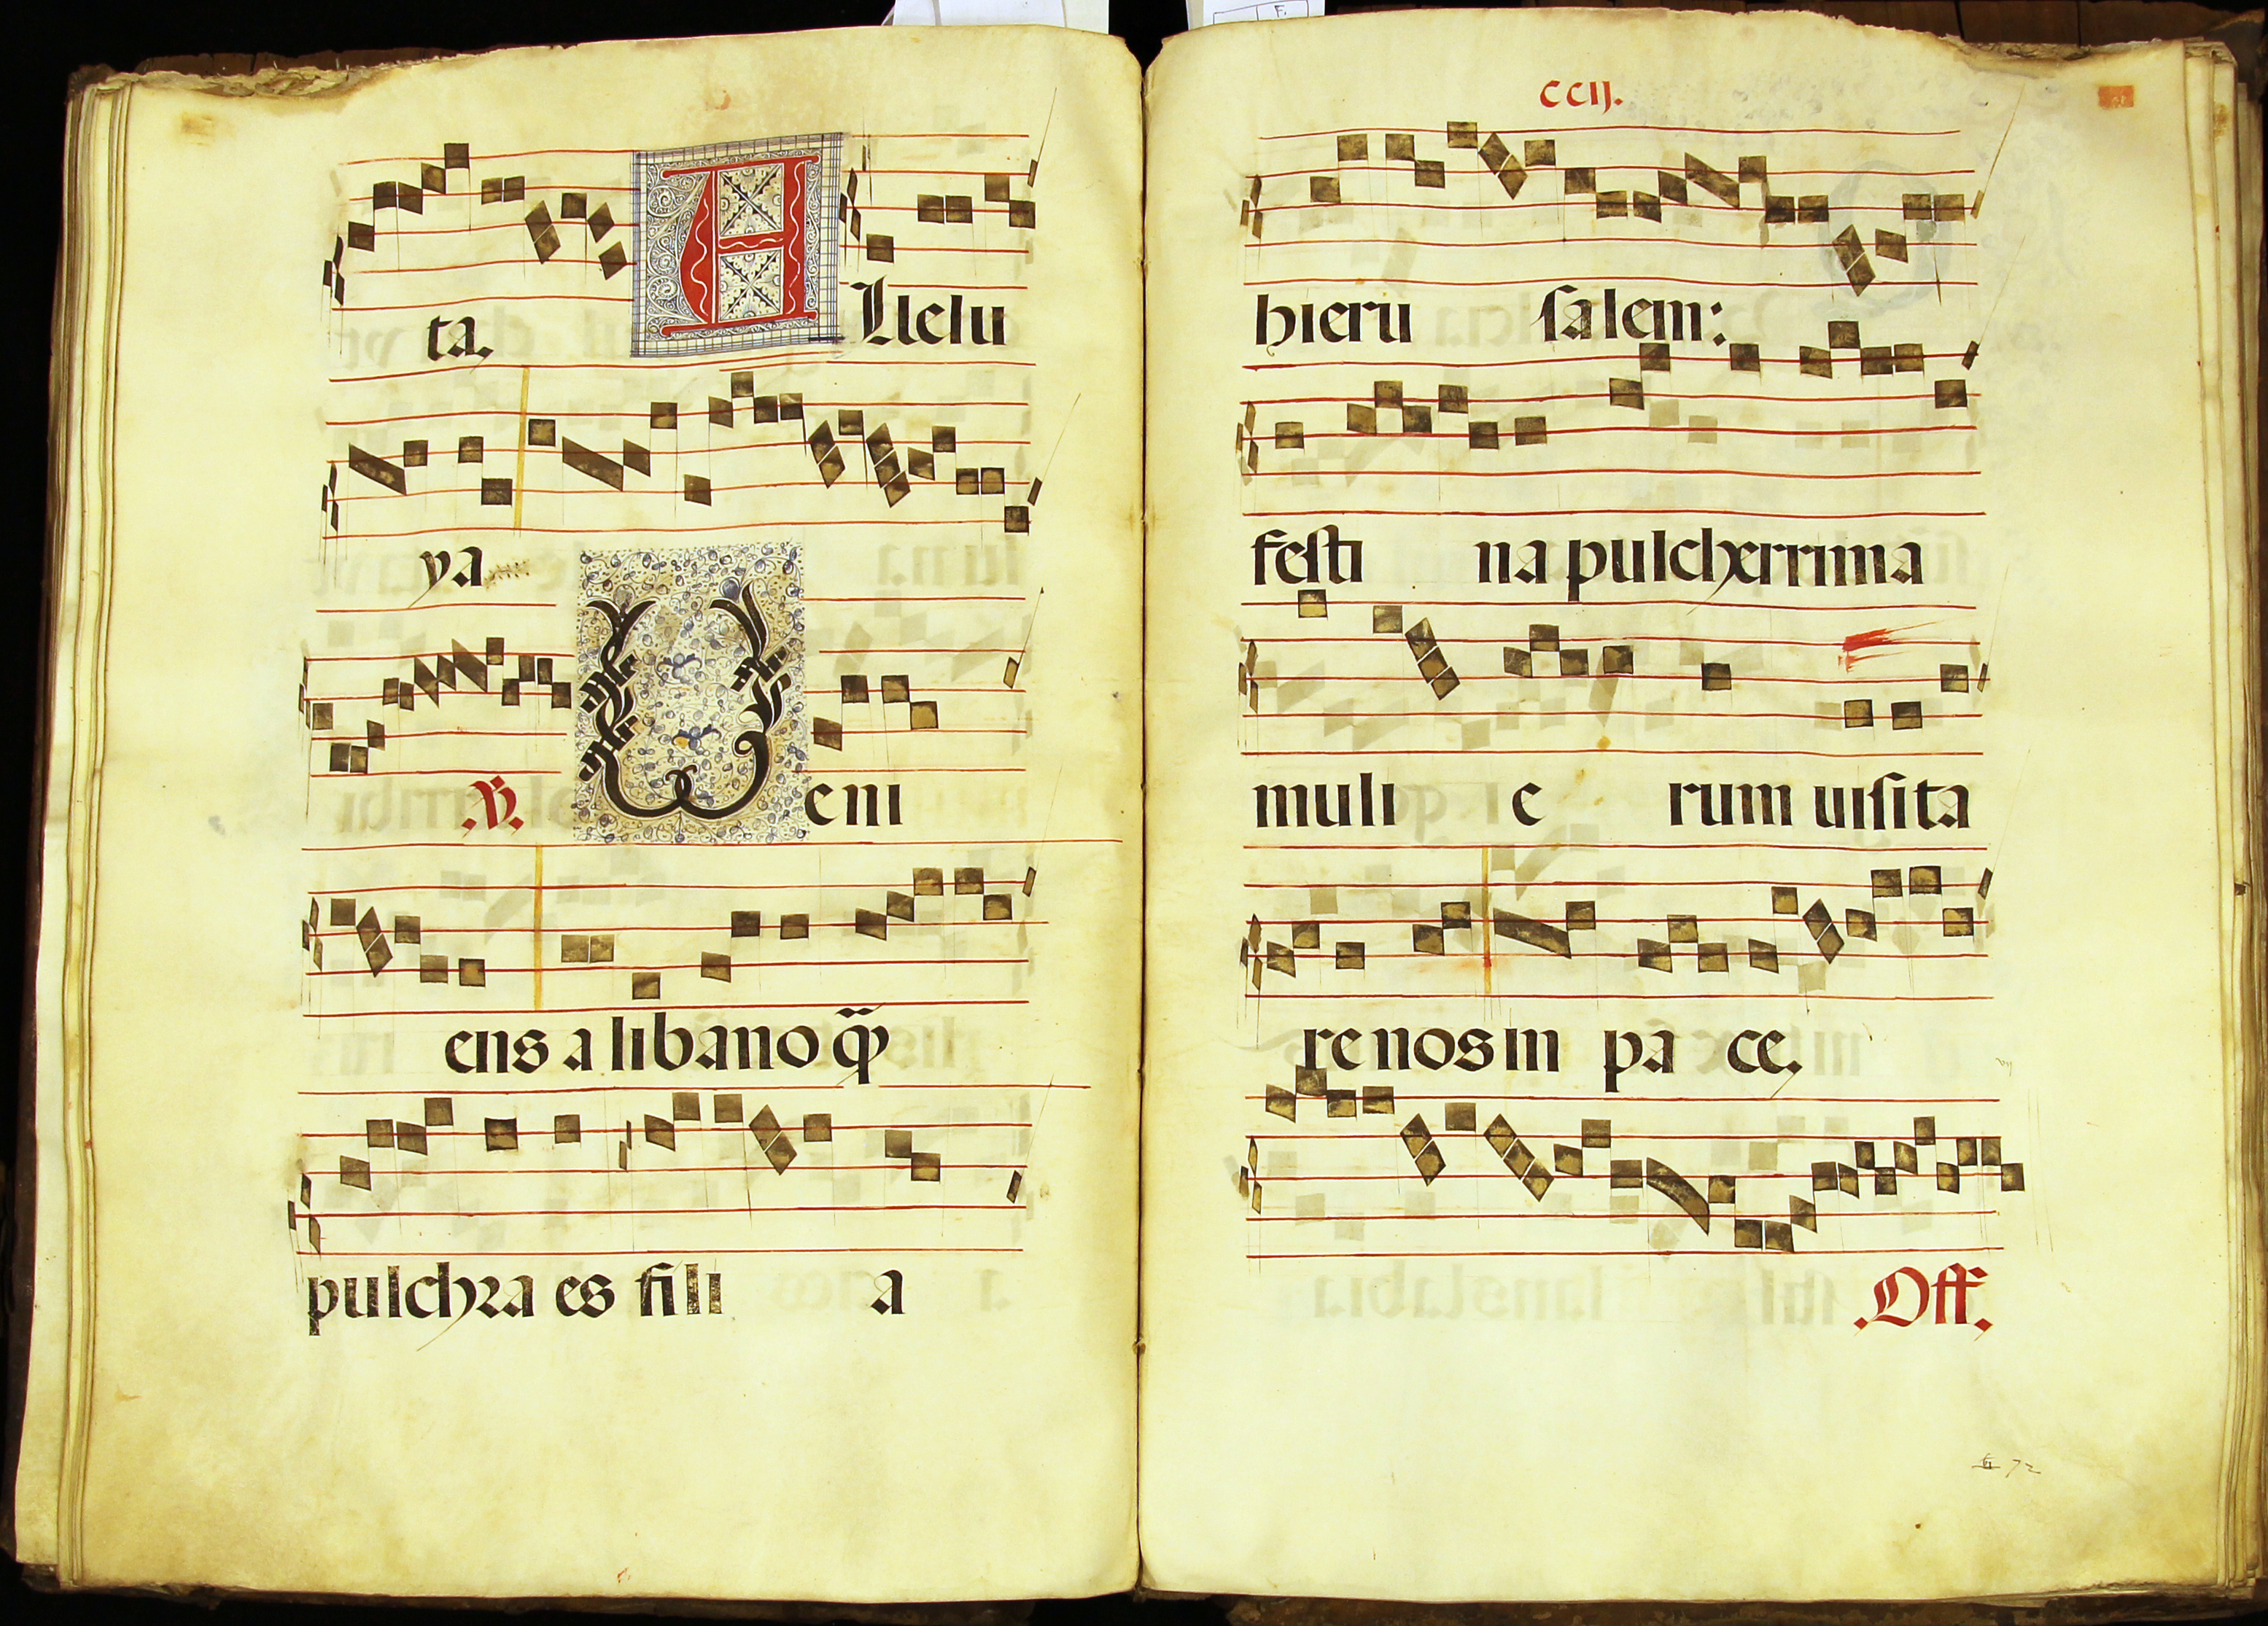 ta,
ALlelu
ya
.V. Veni
ens a libano q̃
pulchra es fili a
CCIJ.
hieru salem:
festi na pulcherrima
muli e rum uisita
re nos in pa ce,
.Off.
72